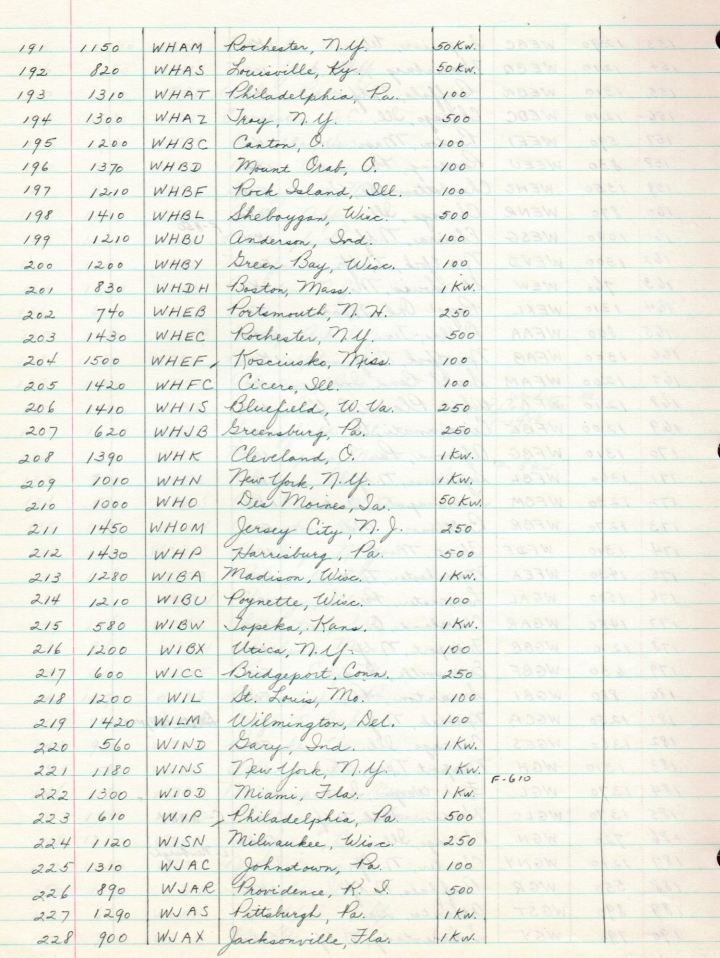 191 1150 WHAM Rochester, N.Y. 50 Kw.
192 820 WHAS Louisville, Ky. 50 Kw.
193 1310 WHAT Philadelphia, Pa. 100
194 1300 WHAZ Troy, N.Y. 500
195 1200 WHBC Canton, O. 100
196 1370 WHBD Mount Orab, O. 100
197 1210 WHBF Rock Island, Ill. 100
198 1410 WHBL Sheboygan, Wisc. 500
199 1210 WHBU Anderson, Ind. 100
200 1200 WHBY Green Bay, Wisc. 100
201 830 WHDH Boston, Mass. 1 Kw.
202 740 WHEB Portsmouth, N.H. 250
203 1430 WHEC Rochester, N.Y. 500
204 1500 WHEF Kosciusko, Miss. 100
205 1420 WHFC Cicero, Ill. 100
206 1410 WHIS Bluefield, W. Va. 250
207 620 WHJB Greensburg, Pa. 250
208 1390 WHK Cleveland, O. 1 Kw.
209 1010 WHN New York, N.Y. 1 Kw.
210 1000 WHO Des Moines, Ia. 50 Kw.
211 1450 WHOM Jersey City, N.J. 250
212 1430 WHP Harrisburg, Pa. 500
213 1280 WIBA Madison, Wisc. 1 Kw.
214 1210 WIBU Poynette, Wisc. 100
215 580 WIBW Topeka, Kans. 1 Kw.
216 1200 WIBX Utica, N.Y. 100
217 600 WICC Bridgeport, Conn. 250
218 1200 WIL St. Louis, Mo. 100
219 1420 WILM Wilmington, Del. 100
220 560 WIND Gary, Ind. 1 Kw.
221 1180 WINS New York, N.Y. 1 Kw.
F-610
222 1300 WIOD Miami, Fla. 1 Kw.
223 610 WIP Philadelphia, Pa 500
224 1120 WISN Milwaukee, Wisc. 250
225 1310 WJAC Johnstown, Pa. 100
226 890 WJAR Providence, R.I. 500
227 1290 WJAS Pittsburgh, Pa. 1 Kw.
228 900 WJAX Jacksonville, Fla. 1 Kw.